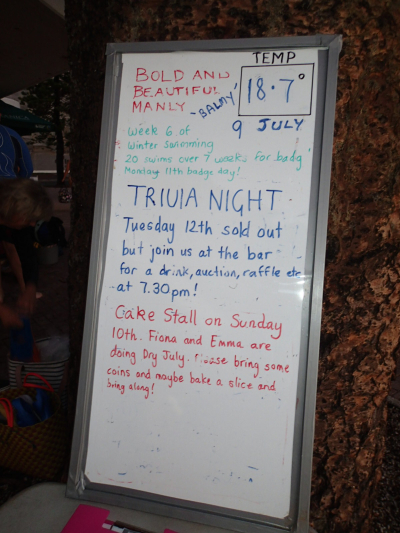 TEMP
BOLD AND
BEAUTIFUL
MANLY
~BALMY'
18.7°
9 JULY
Week 6 of
Winter Swimming
20 swims over 7 weeks for badg
Monday 11th badge day!
TRIVIA NIGHT
Tuesday 12th sold out
but join us at the bar
for a drink, auction, raffle etc
at 7.30pm!
Cake Stall on Sunday
10th. Fiona and Emma are
doing Dry July. Please bring some
coins and maybe bake a slice and
bring along!